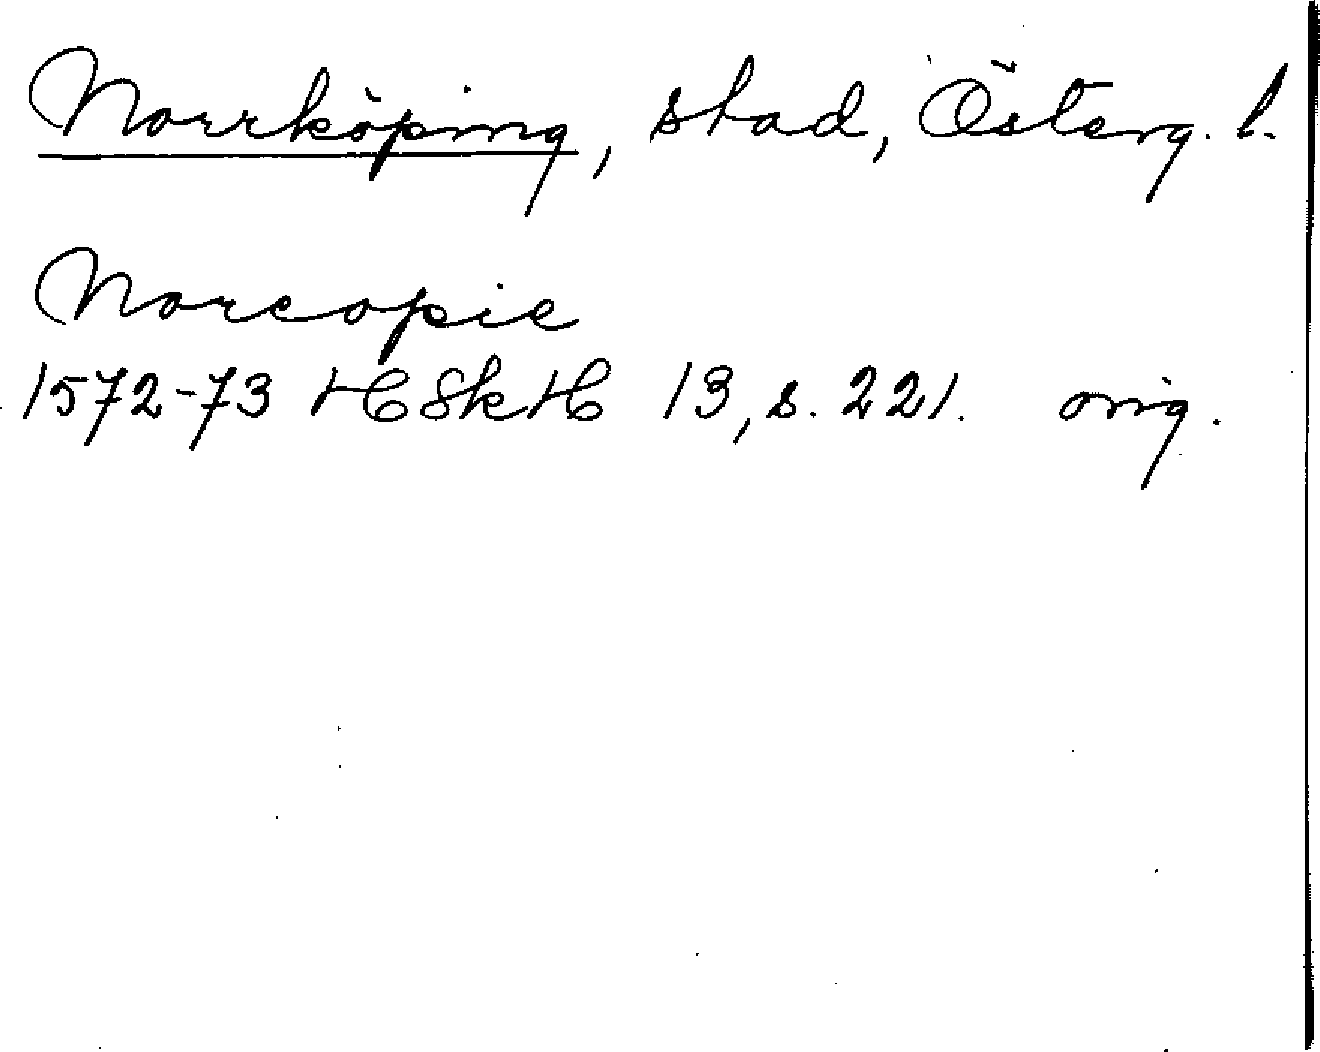 Norrköping, stad, Österg. l.
Norcopie
1572-73 HSkH 13, s. 221. orig.